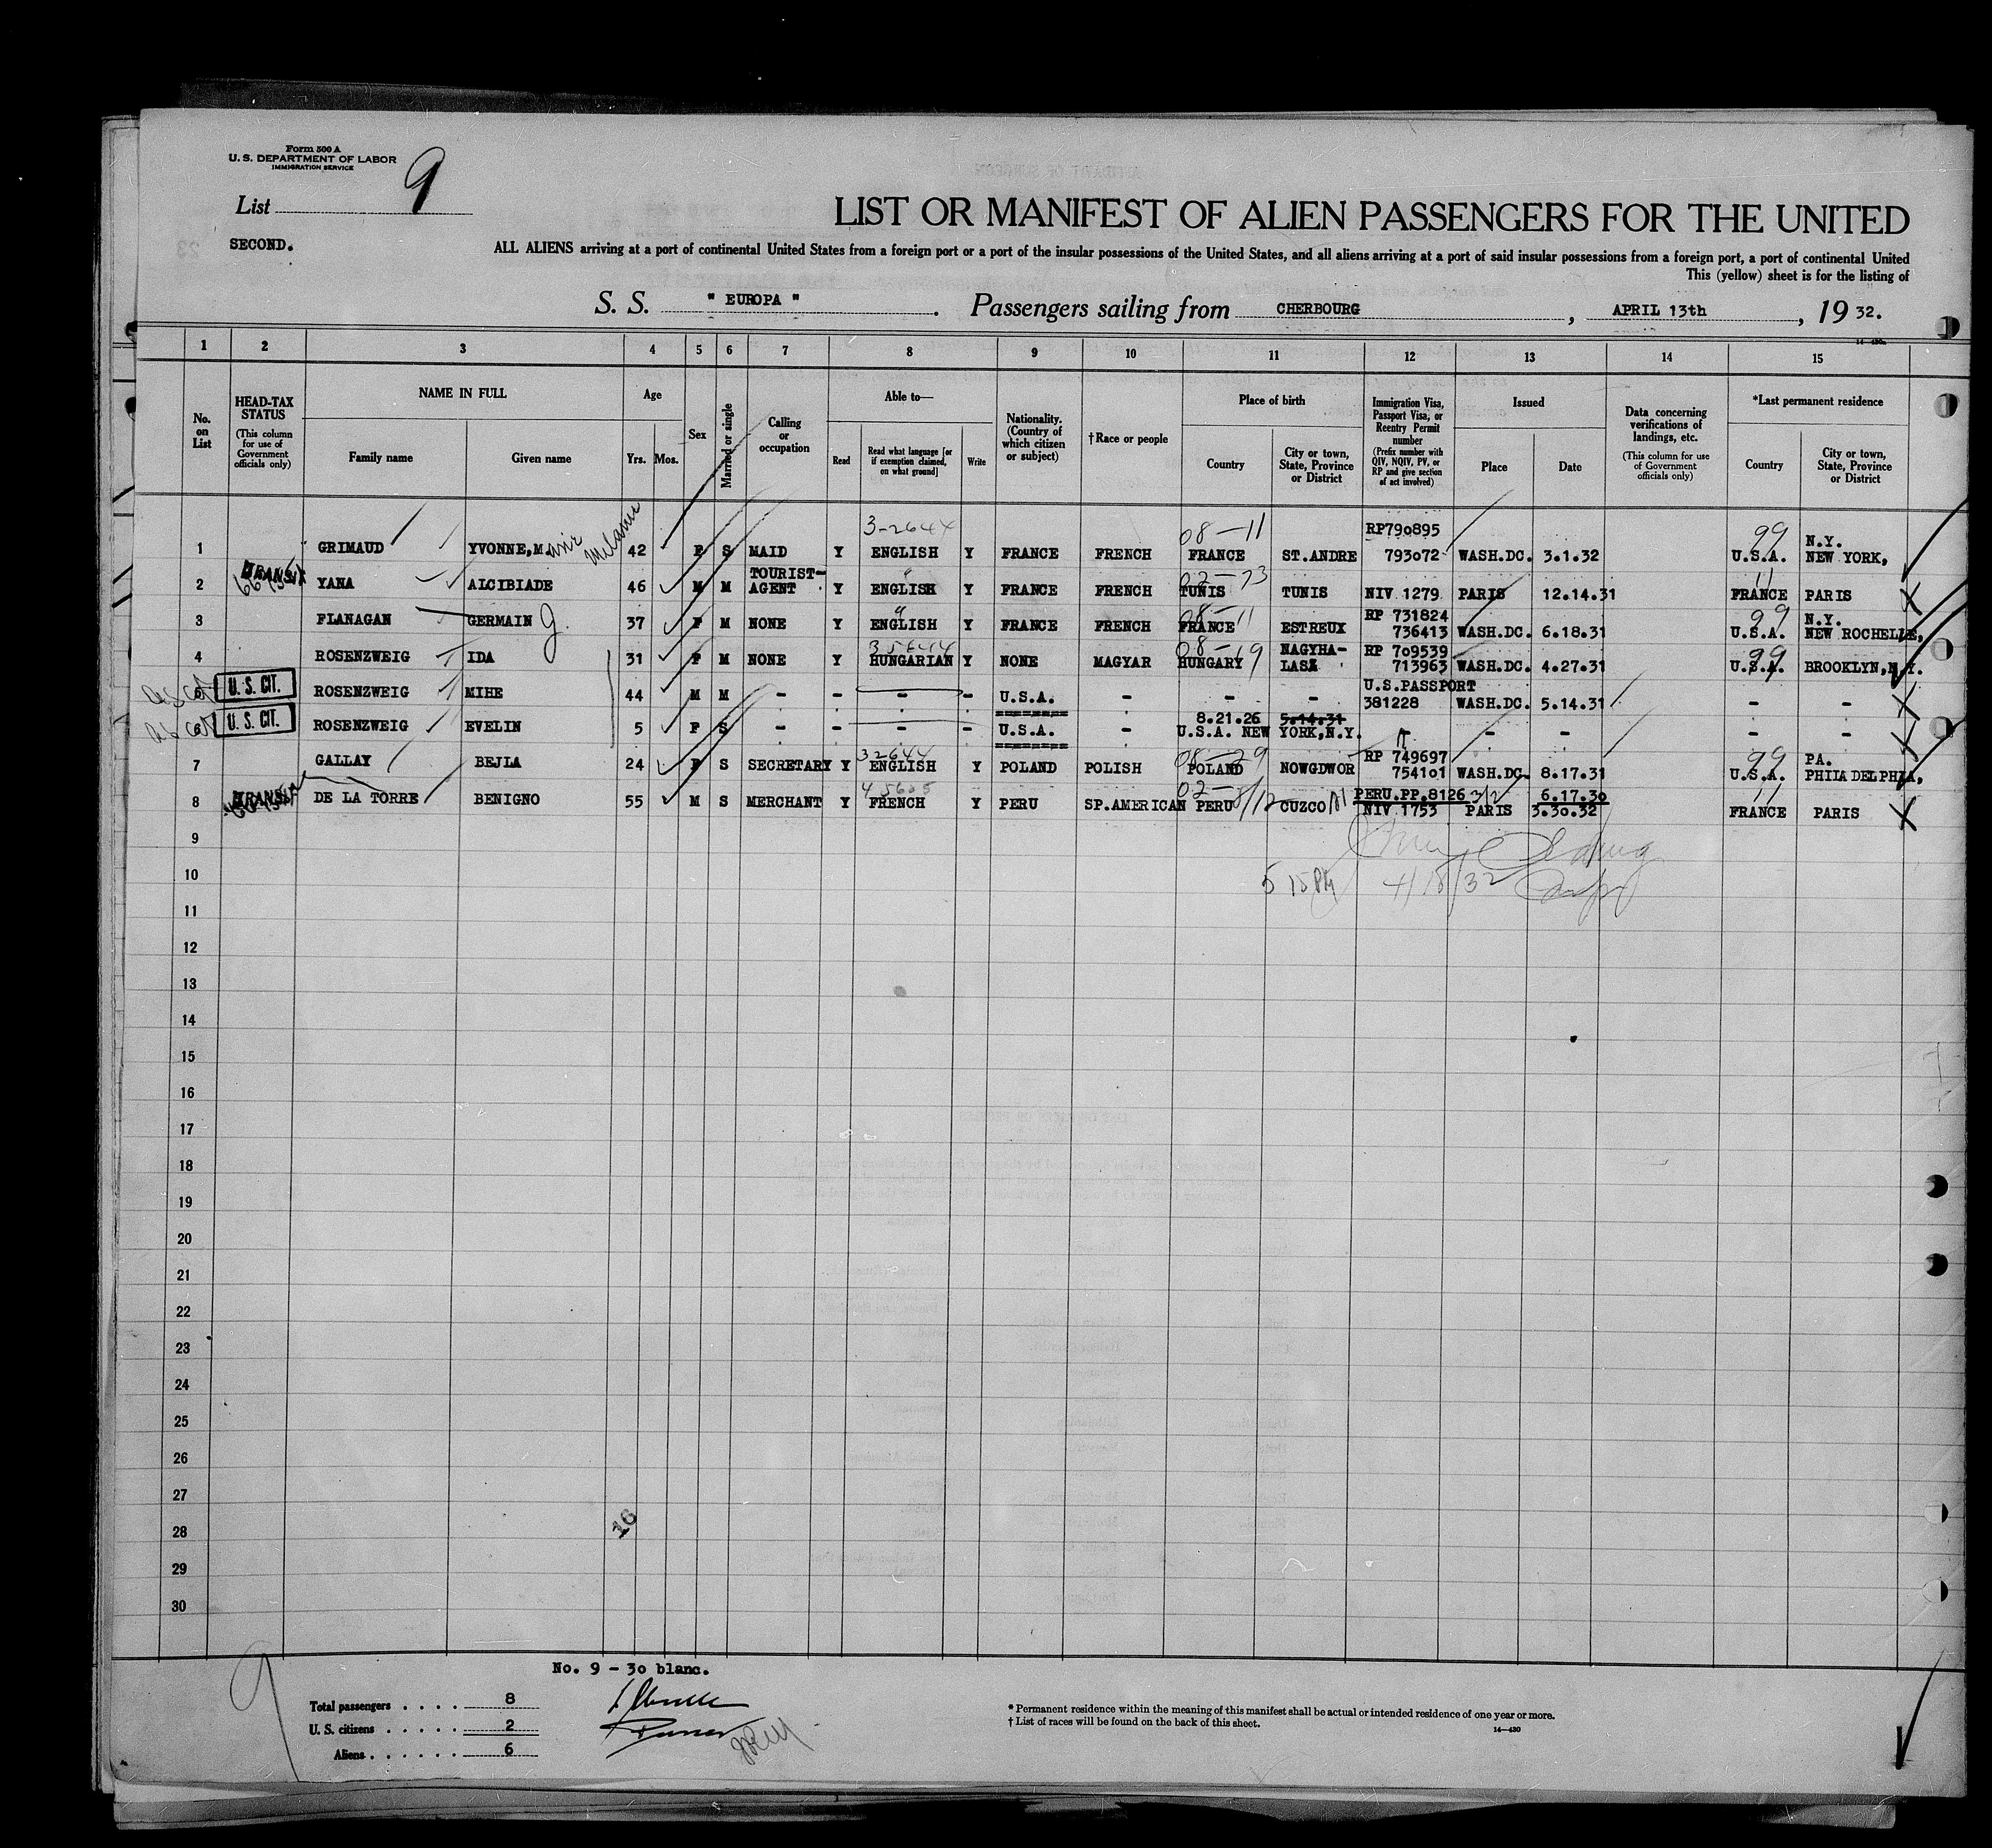 Form 500 A
U. S. DEPARTMENT OF LABOR
IMMIGRATION SERVICE
List 9
SECOND.
LIST OR MANIFEST OF ALIEN PASSENGERS FOR THE UNITED
ALL ALIENS arriving at a port of continental United States from a foreign port or a port of the insular possessions of the United States, and all aliens arriving at a port of said insular possessions from a foreign port, a port of continental United
This (yellow) sheet is for the listing of
S. S. " EUROPA " . Passengers sailing from CHERBOURG , APRIL 13th , 19 32.
1 2 3 4 5 6 7 8 9 10 11 12 13 14 15
No. on List
HEAD-TAX STATUS (This column for use of Government officials only)
NAME IN FULL
Family name Given name
Age
Yrs. Mos.
Sex
Married or single
Calling or occupation
Able to—
Read
Read what language [or if exemption claimed, on what ground]
Write
Nationality. (Country of which citizen or subject)
†Race or people
Place of birth
Country
City or town, State, Province or District
Immigration Visa, Passport Visa, or Reentry Permit number (Prefix number with QIV, NQIV, PV, or RP and give section of act involved)
Issued
Place Date
Data concerning verifications of landings, etc. (This column for use of Government officials only)
*Last permanent residence
Country
City or town, State, Province or District
3-2644 08-11 RP790895 99 N.Y.
1 GRIMAUD YVONNE,M. 42 F S MAID Y ENGLISH Y FRANCE FRENCH FRANCE ST.ANDRE 793072 WASH.DC. 3.1.32 U.S.A. NEW YORK,
TRANSIT TOURIST- 02-73 11
2 YANA ALCIBIADE 46 M M AGENT Y ENGLISH Y FRANCE FRENCH TUNIS TUNIS NIV 1279 PARIS 12.14.31 FRANCE PARIS
08-11 RP 731824 99 N.Y.
3 FLANAGAN GERMAIN 37 F M NONE Y ENGLISH Y FRANCE FRENCH FRANCE ESTREUX 736413 WASH.DC. 6.18.31 U.S.A. NEW ROCHELLE,
08-19 NAGYHA- RP 709539 99
4 ROSENZWEIG IDA 31 F M NONE Y HUNGARIAN Y NONE MAGYAR HUNGARY LASZ 713963 WASH.DC. 4.27.31 U.S.A. BROOKLYN,N.Y.
U.S.PASSPORT
U. S. CIT. ROSENZWEIG MIHE 44 M M - - - - U.S.A. - - - 381228 WASH.DC. 5.14.31 - -
8.21.26 5.14.31
U. S. CIT. ROSENZWEIG EVELIN 5 F S - - - - U.S.A. - U.S.A. NEW YORK,N.Y. - - - -
32644 08-29 RP 749697 99 PA.
7 GALLAY BEJLA 24 F S SECRETARY Y ENGLISH Y POLAND POLISH POLAND NOWGDWOR 754101 WASH.DC. 8.17.31 U.S.A. PHILADELPHIA,
TRANSIT 02- PERU.PP.8126 6.17.30 11
8 DE LA TORRE BENIGNO 55 M S MERCHANT Y FRENCH Y PERU SP.AMERICAN PERU CUZCO NIV 1753 PARIS 3.30.32 FRANCE PARIS
9
10 5 15 PM 4/18/32
11
12
13
14
15
16
17
18
19
20
21
22
23
24
25
26
27
28 16
29
30
9
No. 9 - 30 blanc.
Total passengers . . . . 8
U. S. citizens . . . . . 2
Aliens . . . . . . 6
* Permanent residence within the meaning of this manifest shall be actual or intended residence of one year or more.
† List of races will be found on the back of this sheet.
14—430